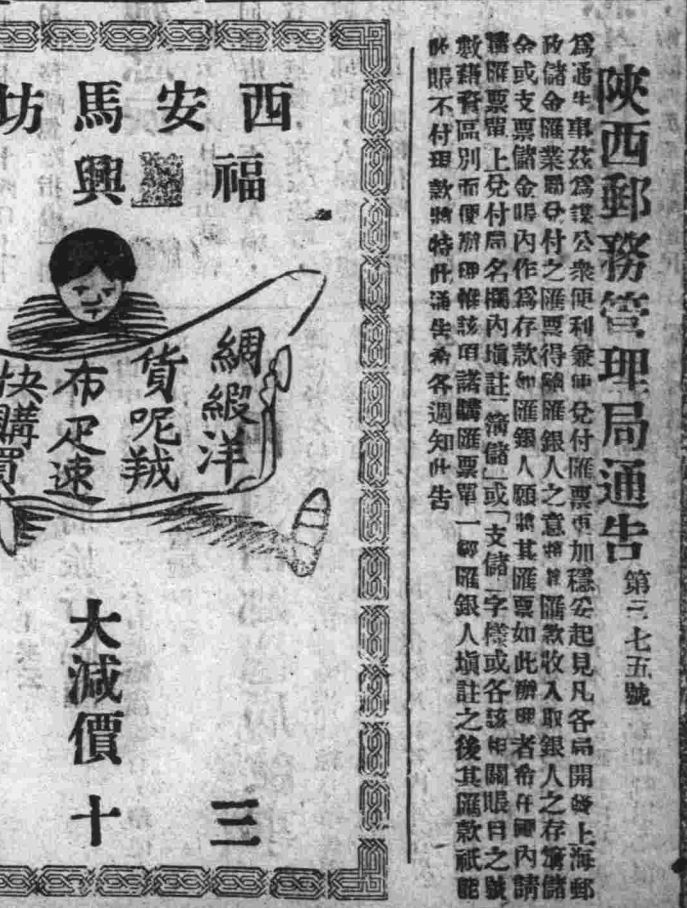 陝西郵務管理局通告
第三七五號
為通告事茲為謀公衆便利兼使兌付匯票更加穩妥起見凡各局開發上海郵
政儲金匯業局兌付之匯票得隨匯銀人之意將其匯款收入取銀人之存簿儲
金或支票儲金賬內作為存款如匯銀人願將其匯票如此辦理者希在國內請
購匯票單上兌付局名欄內塡註「簿儲」或「支儲」字樣或各該相關賬目之號
數藉資區別而便辦理惟該項請購匯票單一經匯銀人塡註之後其匯款祗能
收賬不付現款特此通告希各週知此告
西安馬坊
福興
綢緞洋
貨呢羢
布疋速
快購買
大減價
三十